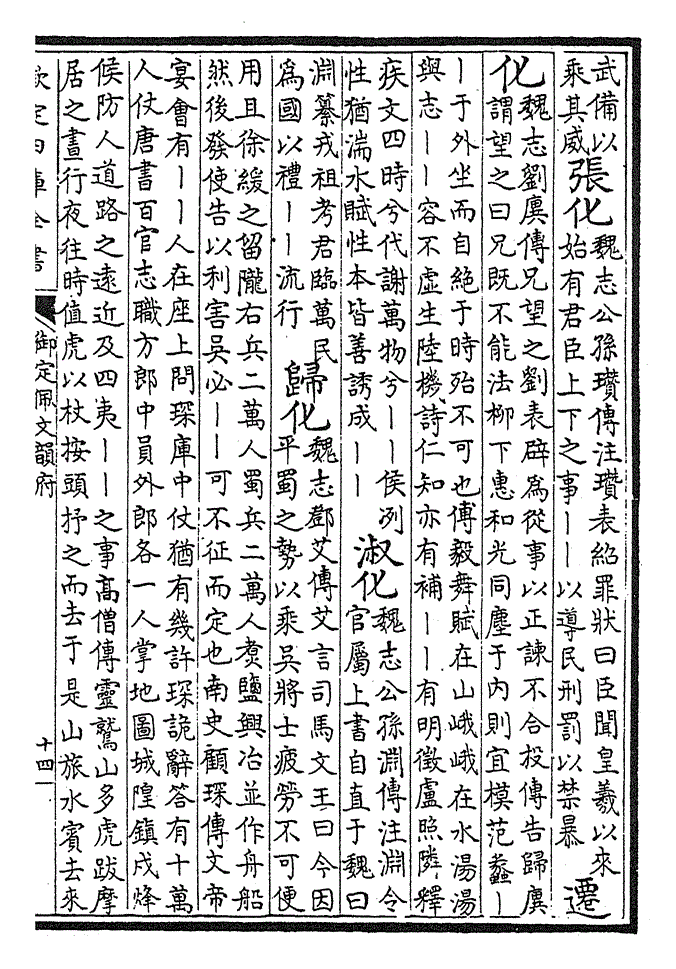 武備以
乘其威
張化
魏志公孫瓚傳注瓚表紹罪狀曰臣聞皇羲以來
始有君臣上下之事丨丨以導民刑罰以禁暴
遷
化
魏志劉廙傳兄望之劉表辟為從事以正諫不合投傳告歸廙
謂望之曰兄既不能法柳下惠和光同塵于內則宜模范蠡丨
丨于外坐而自絕于時殆不可也傅毅舞賦在山峨峨在水湯湯
與志丨丨容不虛生陸機詩仁知亦有補丨丨有明徵盧照隣釋
疾文四時兮代謝萬物兮丨丨侯冽
性猶湍水賦性本皆善誘成丨丨
淑化
魏志公孫淵傳注淵令
官屬上書自直于魏曰
淵纂戎祖考君臨萬民
為國以禮丨丨流行
歸化
魏志鄧艾傳艾言司馬文王曰今因
平蜀之勢以乘吳將士疲勞不可便
用且徐緩之留隴右兵二萬人蜀兵二萬人煑鹽興冶並作舟船
然後發使告以利害吳必丨丨可不征而定也南史顧琛傳文帝
宴會有丨丨人在座上問琛庫中仗猶有幾許琛詭辭答有十萬
人仗唐書百官志職方郎中員外郎各一人掌地圖城隍鎮戍烽
侯防人道路之遠近及四夷丨丨之事高僧傳靈鷲山多虎跋摩
居之晝行夜往時值虎以杖按頭抒之而去于是山旅水賓去來
欽定四庫全書
御定佩文韻府
十四